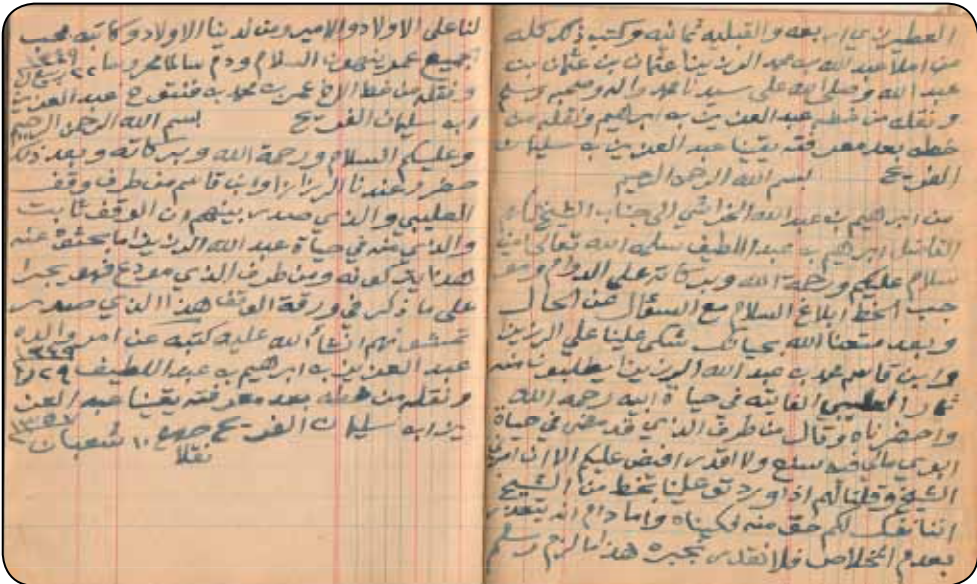 العطيرزي اربعه والقبليه ثمانيه وكتب ذلك كله
من املا عبد الله بن محمد الرزيزا عثمان بن عثمان بن
عبد الله وصلى الله على سيدنا محمد واله وصحبه وسلم
ونقله من خطه عبد العزيز به ابراهيم ونقله من
خطه بعد معرفته يقينا عبد العزيز به سليمان
الفريح بسم الله الرحمن الرحيم
من ابراهيم به عبد الله الخراشي الى جناب الشيخ
الفاضل ابراهيم به عبد اللطيف سلمه الله تعالى امين
سلام عليكم ورحمة الله وبركاته على الدوام ومو
جب الخط ابلاغ السلام مع السؤال عن الحال
وبعد متعنا الله بحياتك شكى علينا علي الرزيزا
وابن قاسم محمد به عبد الله الرزيزا يطلبونا منه
ثمار الصليبي الفائته في حياة ابيه رحمه الله
واحضرناه وقال من طرف الذي قد مضى في حياة
ابوي مالي فيه سنع ولا اقدر افيض عليهم الا ان امرني
الشيخ وقلنا لهم اذا ورد تو علينا بخط من الشيخ
اننا نفك لكم حق منه فكيناه واما دام انه يتعذر
بعدم الخلاص فلا نقدر نجبره هذا ما لزم وسلم
لنا على الاولاد والامير ومن لدينا الاولاد وكاتبه محب
الجميع عمر ينهون السلام ودم سالما محروسا ٢٢ ربيع ١٣٤٩
ونقله من خط الاخ عمر به محمد به فنتوخ عبد العزيز
ابه سليمان الفريح بسم الله الرحمن الرحيم
وعليكم السلام ورحمة الله وبركاته وبعد ذلك
حضر وعندنا الرزيزا وابن قاسم من طرف وقف
الصليبي والذي صدر بينهم ان الوقف ثابت
والذي منه في حياة عبد الله الرزيزا ما يحثون عنه
هذا يتركونه ومن طرف الذي مودع فهو يجرا
على ما ذكر في ورقة الوقف هذا الذي صدر
منهم انشاء الله عليه كتبه عن امر والده
عبد العزيز به ابراهيم به عبد اللطيف ٢٩ ١٣٤٩
ونقله من خطه بعد معرفته يقينا عبد العز
يز ابه سليمان الفريح ١٠ شعبان
نقلا